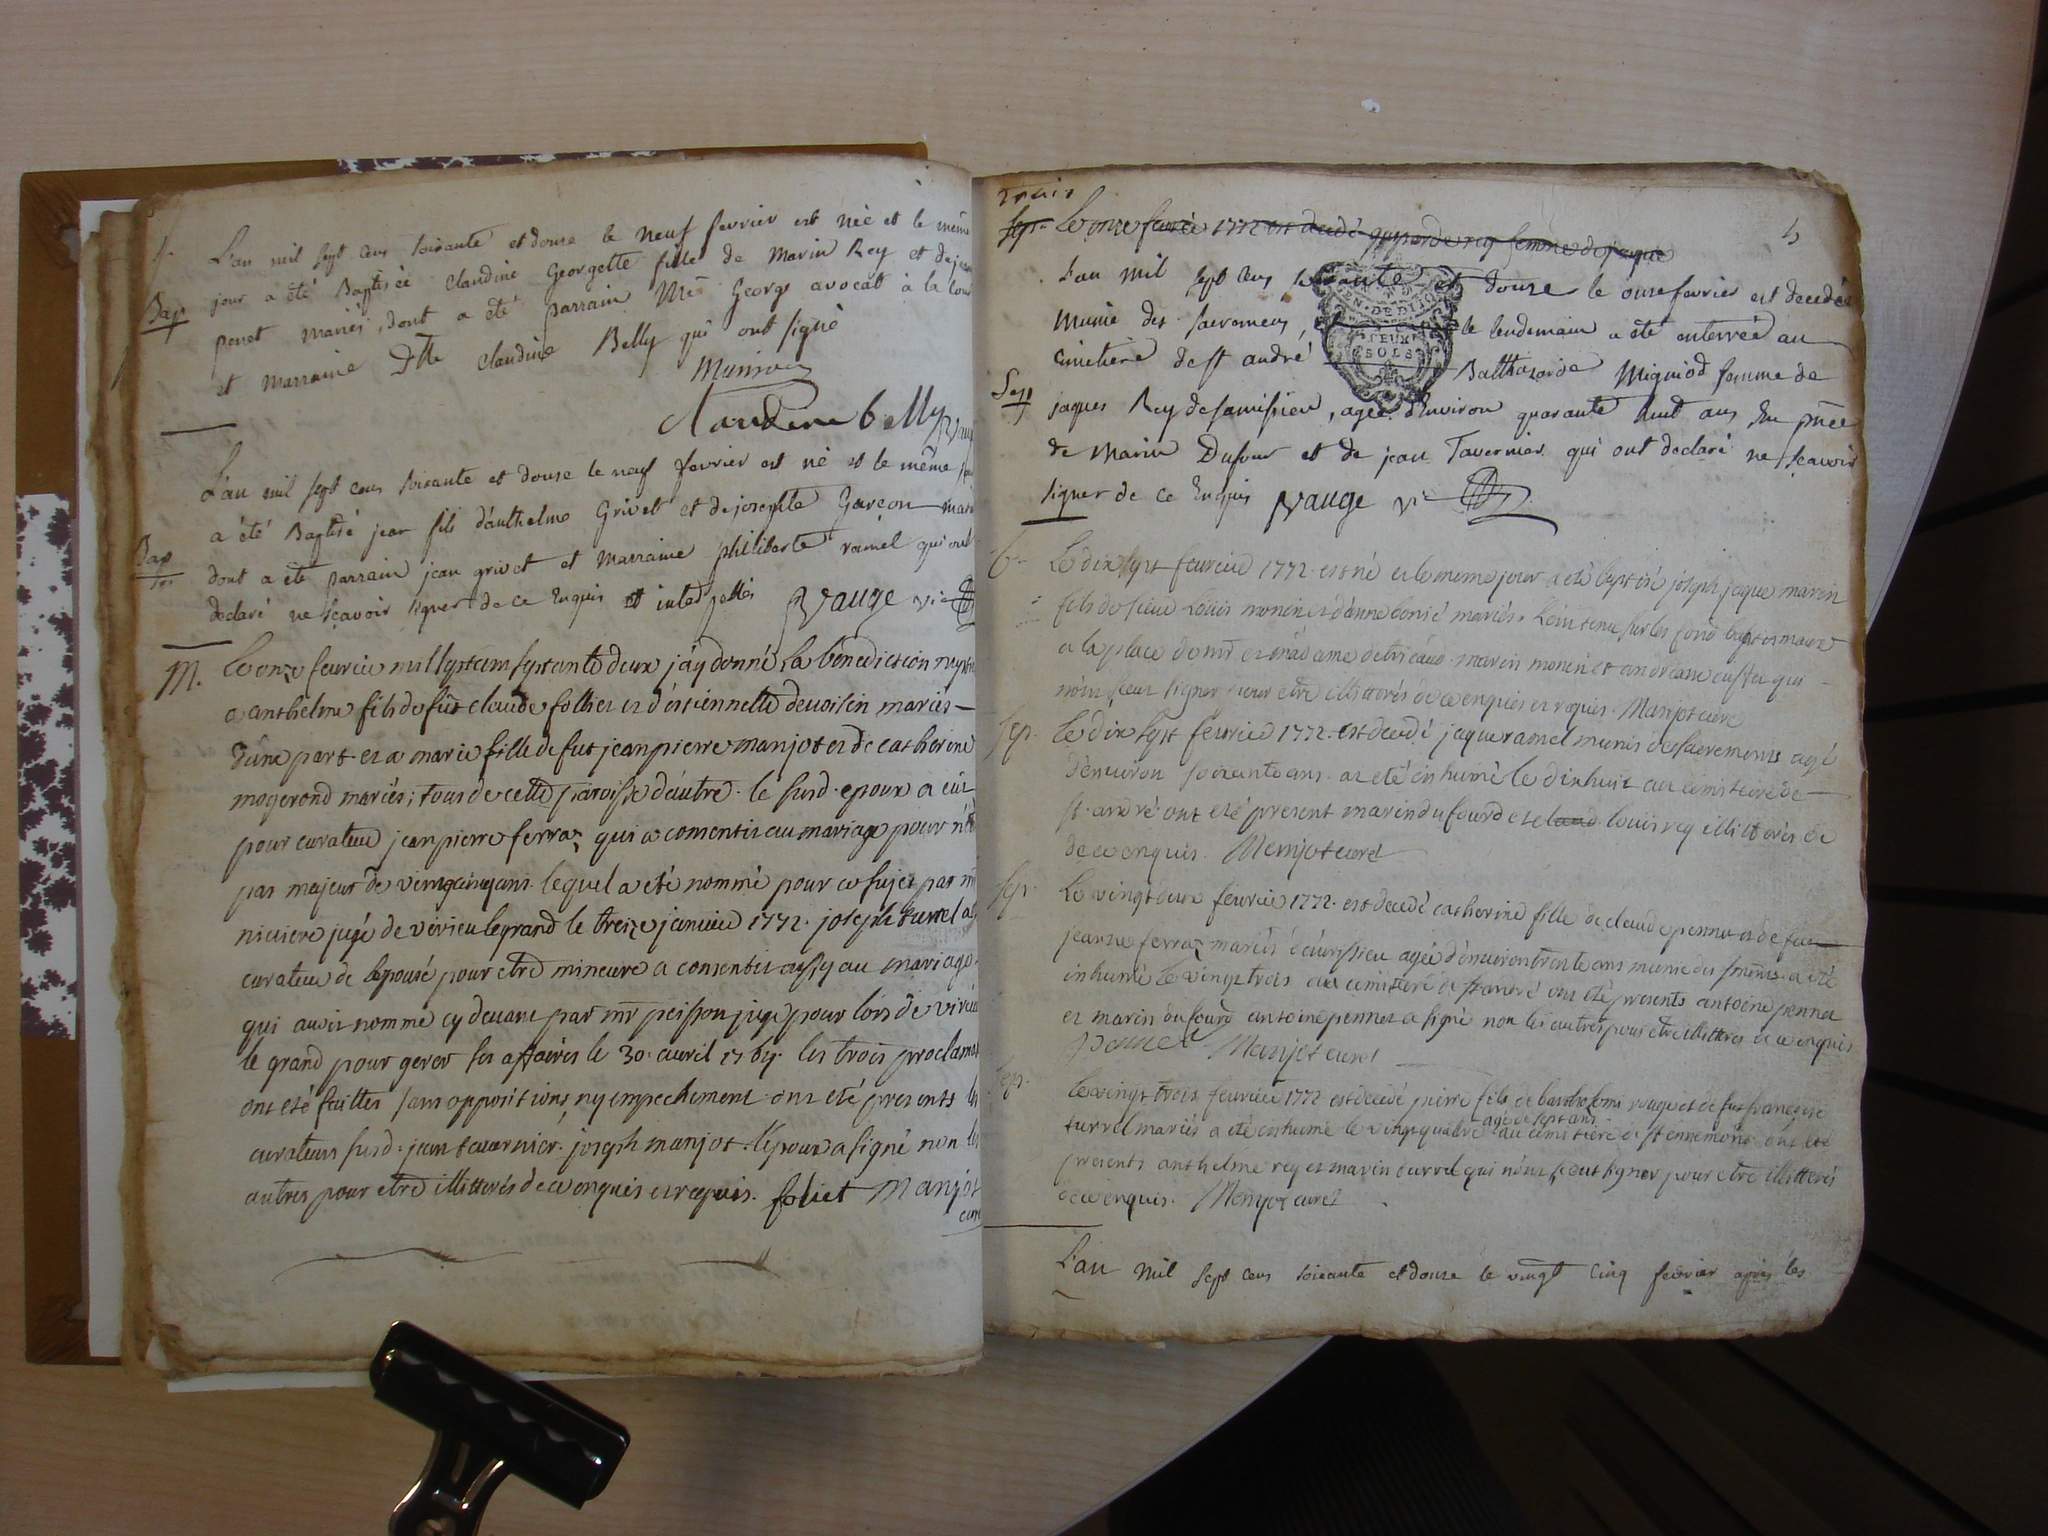 L'an mil sept cens soixante et douse le neuf fevrier est née et le même
Bap jour a été Baptisée claudine Georgette fille de Marin Rey et de
ponet mariés, dont a été parrain Me George avocat à la
et marraine Dlle claudine Belly qui ont signé
claudine belly
L'an mil sept cens soixante et douse le neuf fevrier est né et le même
Bap a été Baptisé jean fils d'anthelme Grivet et de josephte Garçon
dont a été parrain jean grivet et marraine philiberte ramel qui ont
declaré ne sçavoir signer de ce Enquis et interpellés Vauge vic
M. Le onze feurier mil sept cens septante deux j'ay donné la bénédiction
a anthelme fils de fut claude folliet et d'estiennette devoisin mariés
d'une part et a marie fille de fut jean pierre manjot et de catherine
mogerond mariés; tous de cette paroisse d'autre. le susd. epoux a eut
pour curateur jean pierre ferraz qui a consentit au mariage pour
pas majeur de vingt cinq ans lequel a été nommé pour ce sujet par mr
niviere juge de virieu le grand le treize janvier 1772. joseph turrel
curateur de l'epouse pour etre mineure a consentit aussy au mariage
qui avoit nommé cy devant par mr peisson juge pour lors de virieu
le grand pour gerer ses affaires le 30. avril 1769. les trois
ont été faittes sans oppositions ny empechement ont été presents les
curateurs susd. jean tavernier. joseph manjot. l'epoux a signé non les
autres pour etre illitterés de ce enquis et requis. foliet Manjot
curé
5
Sep. Le onze fevrier 1772 est decedé rey femme de jaque
L'an mil sept cens soixante et douse le onse fevrier est decedée
Munie des sacremens, le lendemain a été enterrée au
cimetière de st andré Balthasarde Migniod femme de
Sep jaques Rey de samissieu, agée d'Environ quarante huit ans En pnce
de Marin Dufour et de jean Tavernier qui ont declaré ne sçavoir
signer de ce Enquis Vauge vic
b. Le dix sept feurier 1772. est né et le meme jour a été baptisé joseph jaque marin
fils de sieur Louis monin et d'anne bonié mariés. L'ont tenu sur les fond baptismaux
a la place de mr et madame de marin monin et qui
n'ont sceut signer pour etre illitterés de ce enquis et requis. Manjot curé
Sep. Le dix sept feurier 1772. est decedé jaque ramel munis des sacrements agé
d'environ soixante ans. at été inhumé le dix huit au cimitiere de
st. andré ont eté present marin dufourd et louis rey illitterés de
de ce enquis. Menjot curé
Sep. Le vingt deux feurier 1772. est decedé catherine fille de claude pennet et de fut
jeanne ferraz mariés d'eurissieu agée d'environ trente ans munie des smens. a été
inhumé le vingt trois au cimitiere de st andré ont été presents antoine pennet
et marin dufourd antoine pennet a signé non les autres pour etre illitterés de ce enquis
penet Manjot curé
Sep. Le vingt trois feurier 1772 est decedé pierre fils de barthelemi rouge et de fut françoise
agé de sept ans
turrel mariés a été enhumé le vingt quatre au cimitiere de st ennemond ont été
presents anthelme rey et marin turrel qui n'ont sceut signer pour etre illitterés
de ce enquis. Menjot curé
L'an mil sept cens soixante et douse le vingt cinq fevrier après les